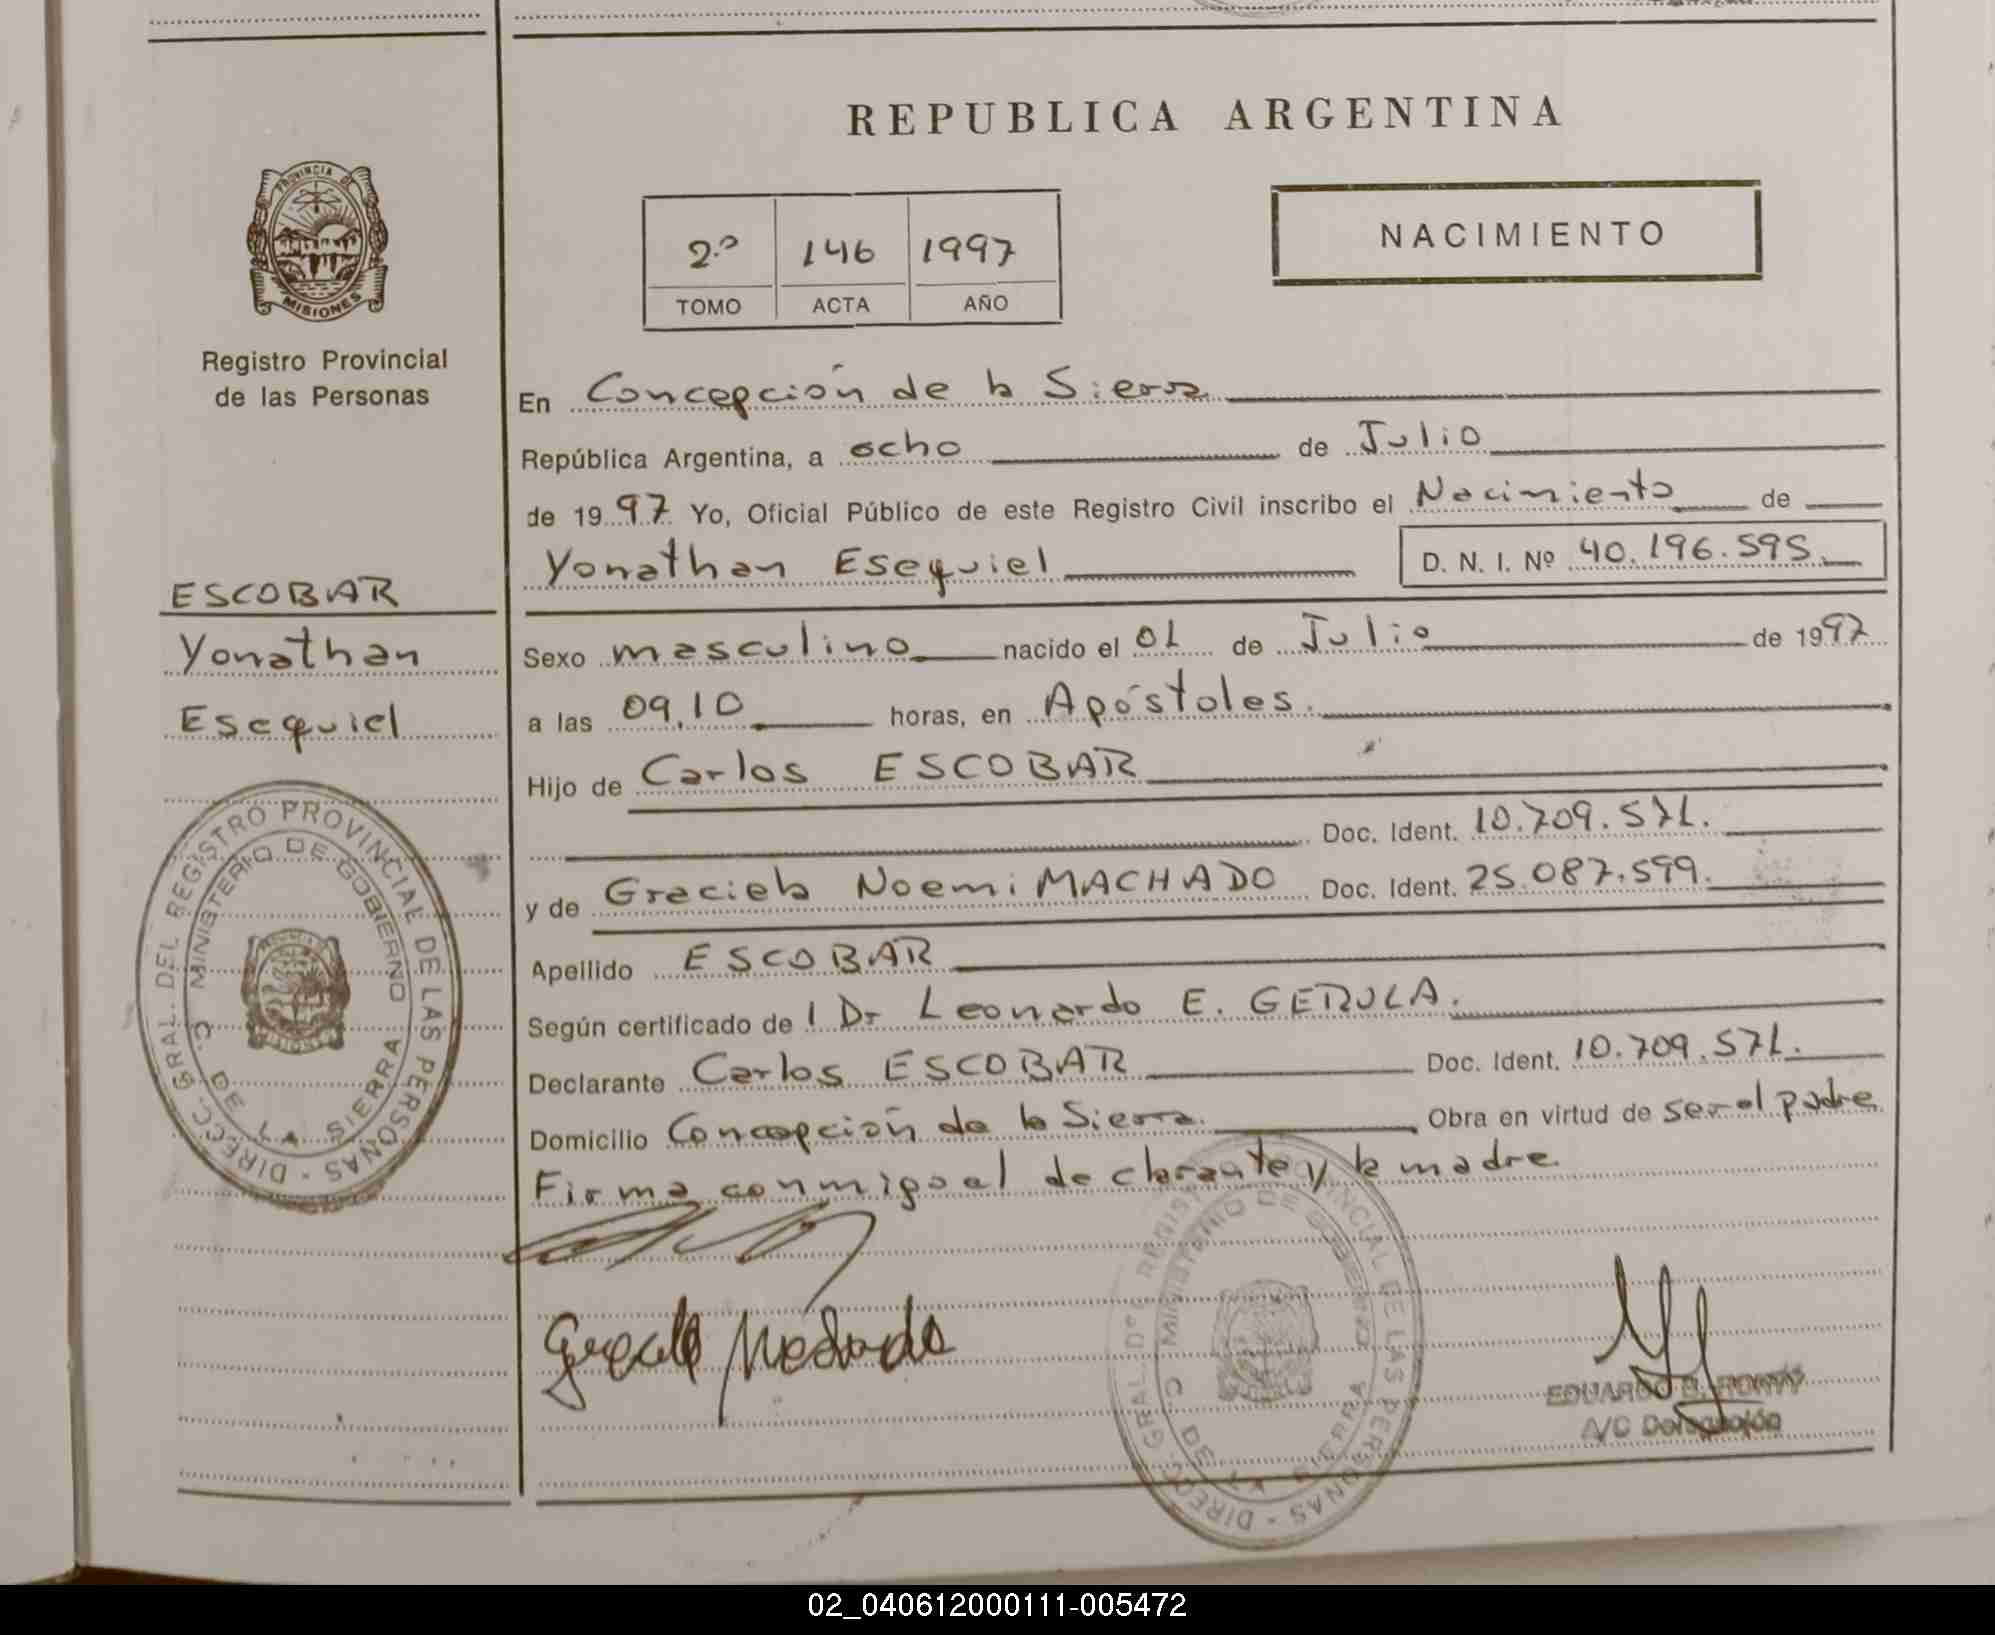 REPUBLICA ARGENTINA
PROVINCIA DE
MISIONES
Registro Provincial
de las Personas
2.º 146 1997
TOMO ACTA AÑO
NACIMIENTO
ESCOBAR
Yonathan
Esequiel
En Concepción de la Sierra
República Argentina, a ocho de Julio
de 1997 Yo, Oficial Público de este Registro Civil inscribo el Nacimiento de
Yonathan Esequiel D. N. I. Nº 40.196.595.
Sexo masculino nacido el 01 de Julio de 1997
a las 09.10 horas, en Apóstoles.
Hijo de Carlos ESCOBAR
Doc. Ident. 10.709.571.
y de Graciela Noemi MACHADO Doc. Ident. 25.087.599.
Apellido ESCOBAR
Según certificado de l Dr Leonardo E. GERULA.
Declarante Carlos ESCOBAR Doc. Ident. 10.709.571.
Domicilio Concepción de la Sierra. Obra en virtud de ser el padre
Firma conmigo el declarante y la madre.
DIRECC. GRAL. DEL REGISTRO PROVINCIAL DE LAS PERSONAS -
MINISTERIO DE GOBIERNO
C. DE LA SIERRA
Machado
DIRECC. GRAL. REGIS PROVINCIAL DE LAS PERSONAS -
MINISTERIO DE GOBIERNO
C. DE LA SIERRA
EDUARDO
A/C Delegación
02_040612000111-005472